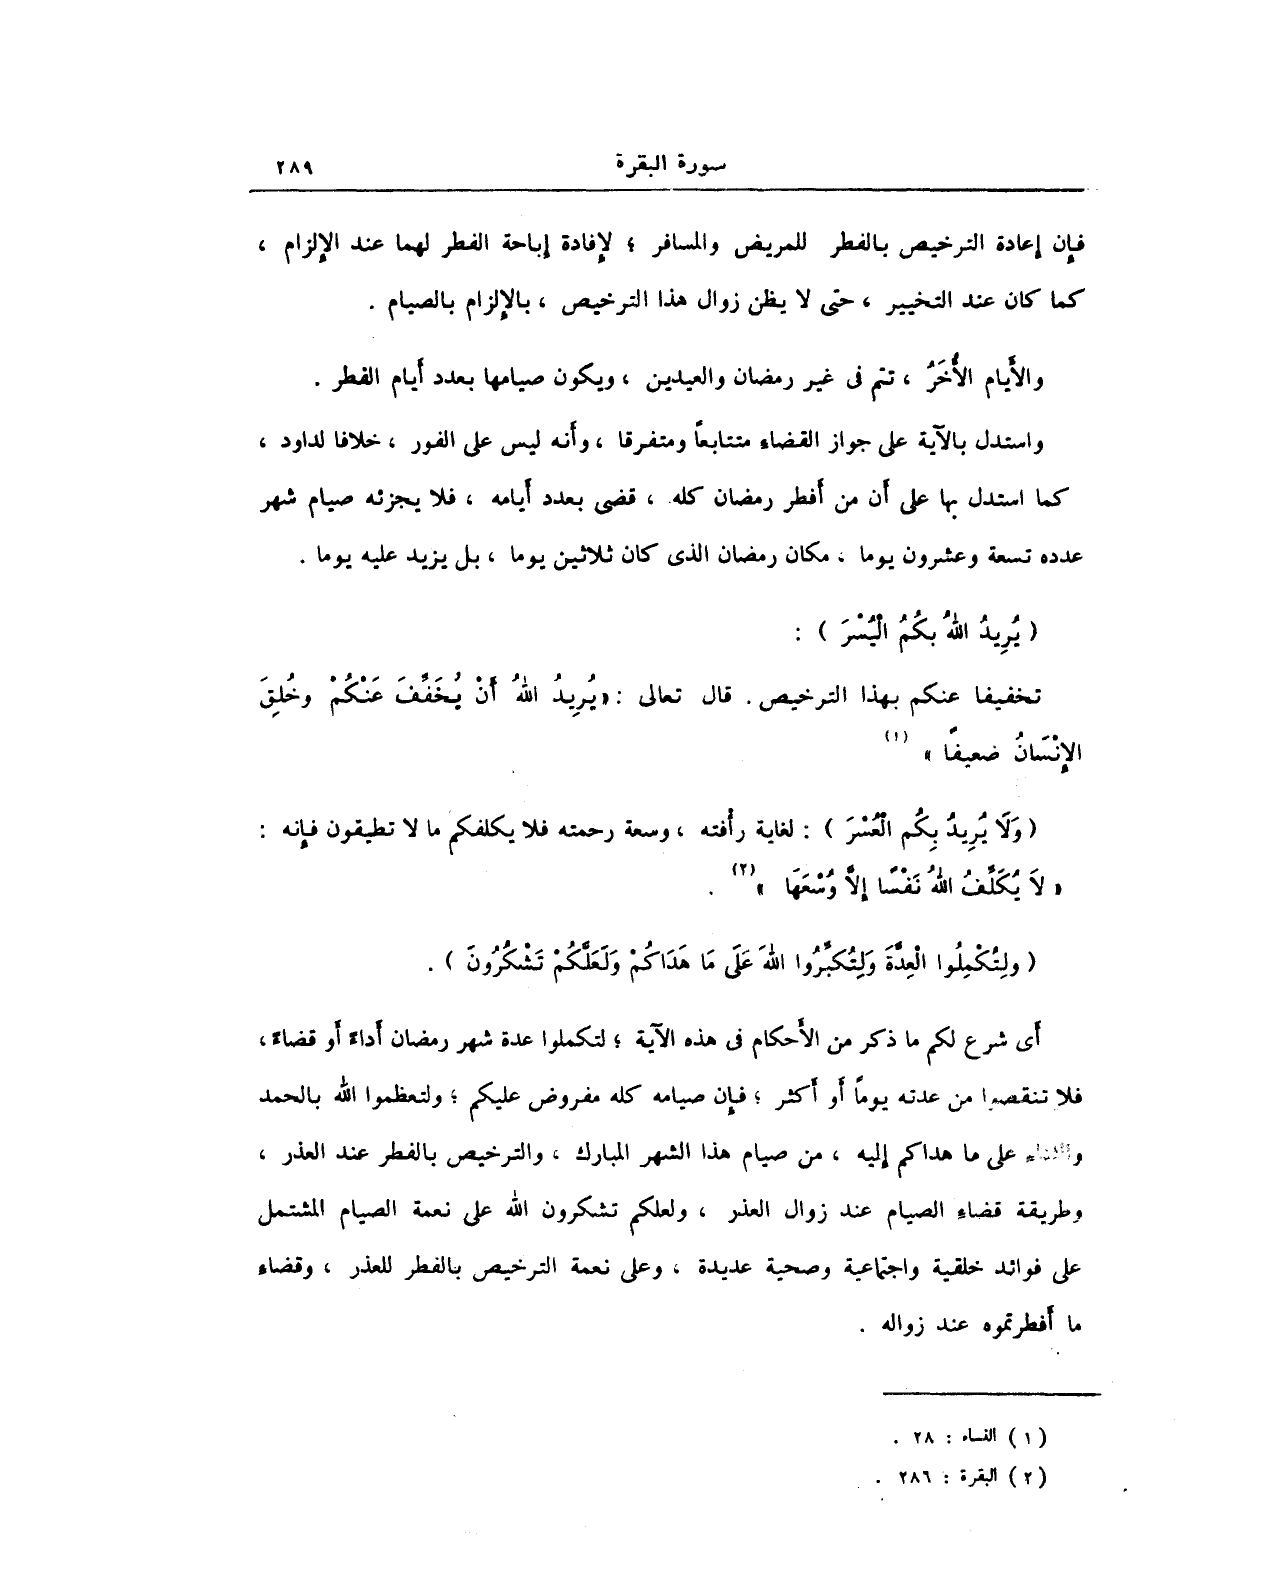 سورة البقرة ٢٨٩
فإن إعادة الترخيص بالفطر للمريض والمسافر ؛ لإفادة إباحة الفطر لهما عند الإلزام ،
كما كان عند التخيير ، حتى لا يظن زوال هذا الترخيص ، بالإلزام بالصيام .
والأَيام الأُخَرُ ، تتم فى غير رمضان والعيدين ، ويكون صيامها بعدد أَيام الفطر .
واستدل بالآية على جواز القضاء متتابعاً ومتفرقا ، وأَنه ليس على الفور ، خلافا لداود ،
كما استدل بها على أَن من أَفطر رمضان كله ، قضى بعدد أَيامه ، فلا يجزئه صيام شهر
عدده تسعة وعشرون يوما ، مكان رمضان الذى كان ثلاثين يوما ، بل يزيد عليه يوما .
( يُرِيدُ اللهُ بِكُمُ الْيُسْرَ ) :
تخفيفا عنكم بهذا الترخيص . قال تعالى : « يُرِيدُ اللهُ أَنْ يُخَفِّفَ عَنْكُمْ وخُلِقَ
الإِنْسَانُ ضعيفًا » (١)
( وَلَا يُرِيدُ بِكُم الْعُسْرَ ) : لغاية رأْفته ، وسعة رحمته فلا يكلفكم ما لا تطيقون فإنه :
« لاَ يُكَلِّفُ اللهُ نَفْسًا إِلاَّ وُسْعَهَا » (٢) .
( ولِتُكْمِلُوا الْعِدَّةَ وَلِتُكَبِّرُوا اللهَ عَلَى مَا هَدَاكُمْ وَلَعَلَّكُمْ تَشْكُرُونَ ) .
أَى شرع لكم ما ذكر من الأَحكام فى هذه الآية ؛ لتكملوا عدة شهر رمضان أَداءً أَو قضاءً ،
فلا تنقصوا من عدته يوماً أَو أَكثر ؛ فإن صيامه كله مفروض عليكم ؛ ولتعظموا الله بالحمد
والثناء على ما هداكم إليه ، من صيام هذا الشهر المبارك ، والترخيص بالفطر عند العذر ،
وطريقة قضاء الصيام عند زوال العذر ، ولعلكم تشكرون الله على نعمة الصيام المشتمل
على فوائد خلقية واجتماعية وصحية عديدة ، وعلى نعمة الترخيص بالفطر للعذر ، وقضاء
ما أَفطرتموه عند زواله .
( ١ ) النساء : ٢٨ .
( ٢ ) البقرة : ٢٨٦ .